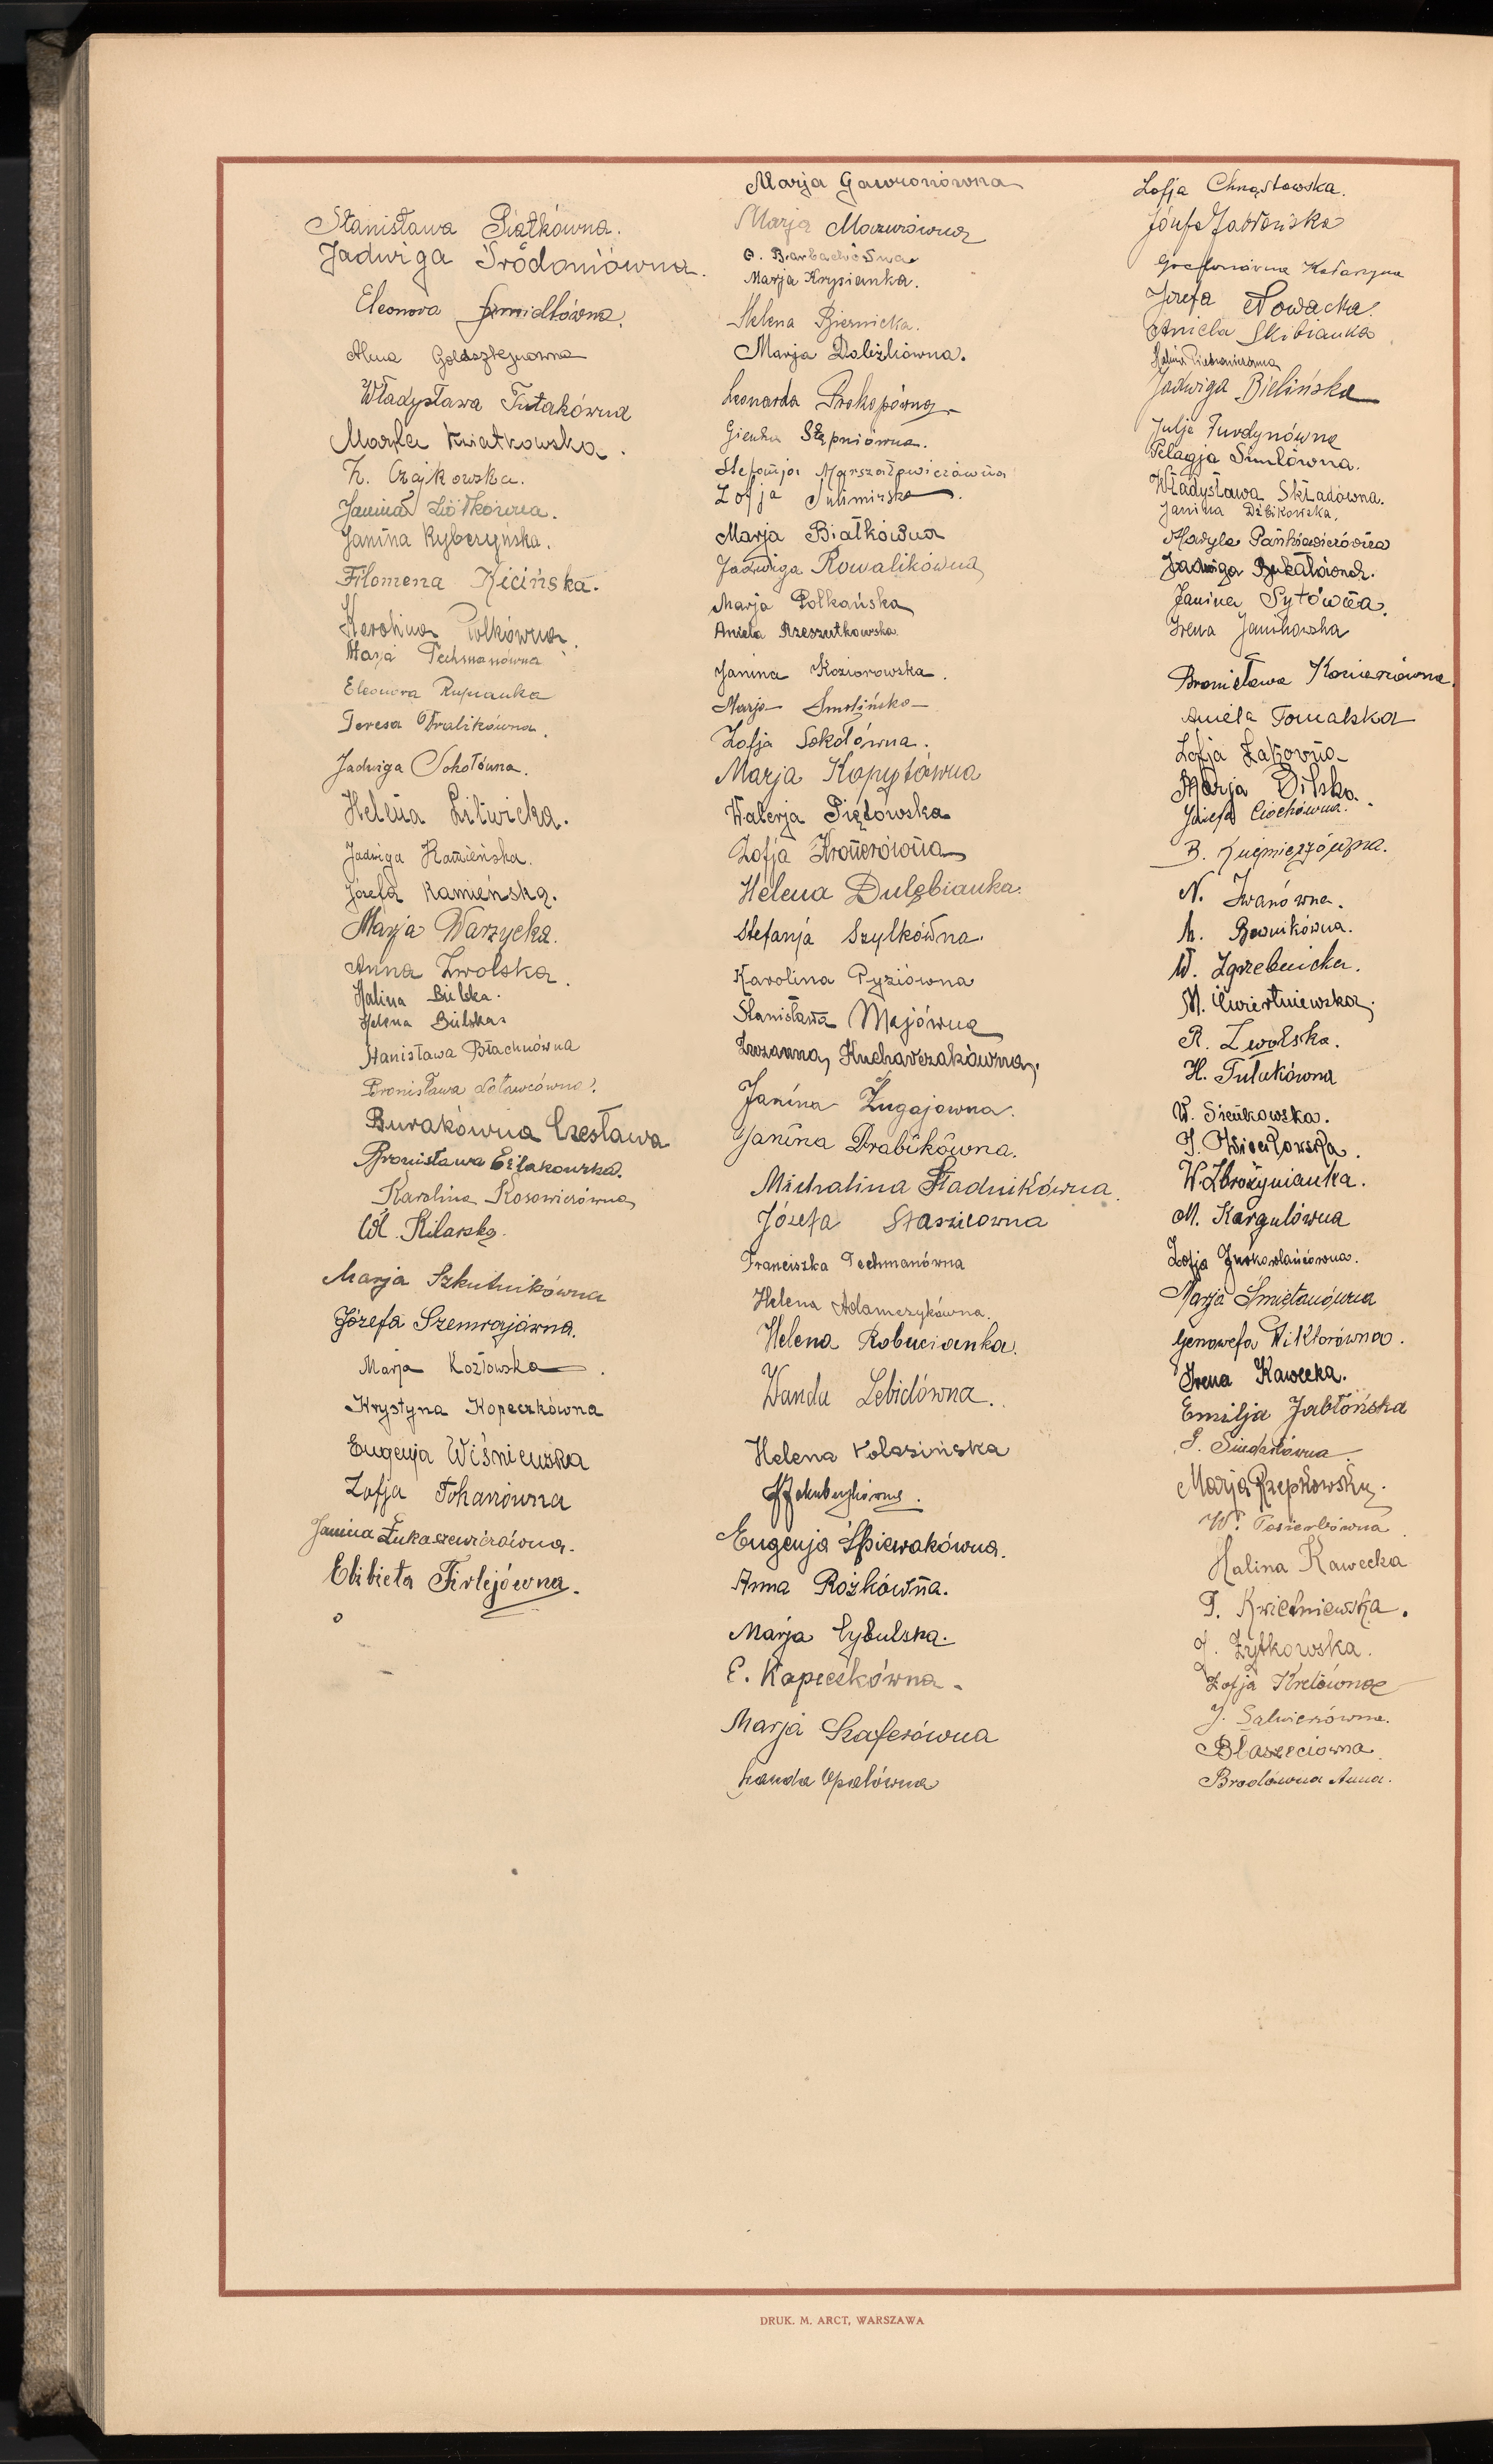 Stanisława Piątkówna.
Jadwiga Środoniówna.
Eleonora Szmidtówna.
Władysława Tutakówna
Marta Kwiatkowska.
Z. Czajkowska.
Janina Ziółkówna.
Janina Rybczyńska.
Filomena Kicińska.
Karolina Polkówna.
Marja Techmanówna
Eleonora Rupianka
Teresa Wralikówna.
Jadwiga Sokołówna.
Helena Litwicka.
Jadwiga Kamieńska.
Józefa Kamieńska.
Marja Warzycka.
Anna Zwolska.
Halina Bielska.
Helena Bielska
Stanisława Błachnówna
Bronisława
Burakówna Czesława
Bronisława
Karolina Kosowiczówna
Wł. Kilarska.
Marja Szkutnikówna
Józefa Szemrajówna.
Marja Kozłowska.
Krystyna Kopeczkówna
Eugenja Wiśniewska
Zofja Tokarzówna
Janina Łukaszewiczówna.
Elżbieta Firlejówna.
Marja Gawronówna
Marja Mazurówna
Marja Krypianka.
Helena Biernicka.
Marja Dobiżkówna.
Leonarda Prokopówna
Gienia Stępniówna.
Stefanja Marszałowiczówna
Zofja Sulimirska.
Marja Białkówna
Jadwiga Kowalikówna
Marja Polkańska
Aniela Rzeszutkowska
Janina Koziorowska.
Marja Smolińska
Zofja Sokołówna.
Marja Kopytówna
Walerja Piętowska
Zofja Kramerówna
Helena Dulębianka.
Stefanja Szylkówna.
Karolina Pyziówna
Stanisława Majówna
Zuzanna Kucharzakówna.
Janina Zugajowna.
Janina Drabikówna.
Michalina Stadnikówna.
Józefa Staszicowna
Franciszka Techmanówna
Helena Adamczykówna.
Helena Robucianka.
Wanda Lebidówna.
Helena Kolasińska
Eugenja Śpiewakówna.
Anna Rożkówna.
Marja Cybulska.
E. Kapecikówna.
Marja Szaferówna
Wanda Opalówna
Zofja Chrząstowska.
Józefa Jaworska
Katarzyna
Józefa Nowacka.
Aniela Skibianka.
Jadwiga Bielińska
Julja Furdynówna
Pelagja Smutówna.
Władysława Składówna.
Janina Dębikowska.
Maryla Pańkiewiczówna
Jadwiga Bukałówna.
Janina Sytówna.
Irena Janikowska
Bronisława Korierówna.
Aniela Tomalska
Zofja Żakówna
Marja Bilska.
Józefa Ciochówna.
B. Kuśmierzówna.
N. Iwanówna.
M. Bownikówna.
W. Zgrzebnicka.
M. Ćwiertniewska.
R. Zwolska.
H. Tutakówna
W. Sieńkowska.
J. Kwiatkowska.
W. Zbrożynianka.
M. Kargulówna
Zofja
Marja Śmietanówna
Genowefa Wiktorówna.
Irena Kawecka.
Emilja Jabłońska
Marja Rzepkowska.
W. Pasierbówna.
Halina Kawecka
T. Kwietniewska.
J. Żytkowska.
Zofja Kretówna
J. Salwierówna.
Błaszczciowna.
Brodówna Anna.
DRUK. M. ARCT, WARSZAWA